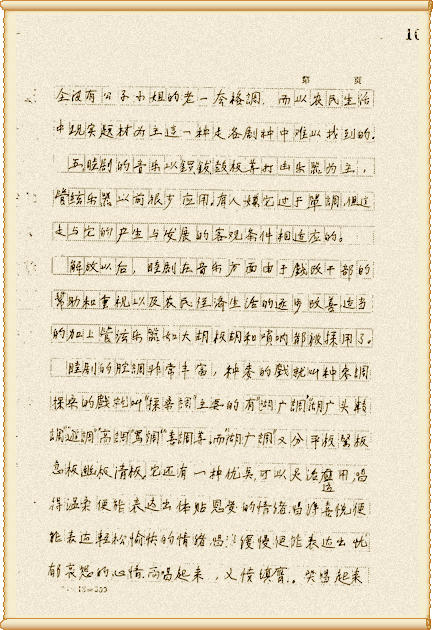 16
第 页
全没有公子小姐的老一套格調，而以农民生活
中现实题材为主這一种是各剧种中难以找到的.
五 睦剧的音乐以鑼鈸鼓板等打击乐器为主，
管絃乐器以前很少应用.有人嫌它过于单調,但这
是与它的产生与发展的客观条件相适应的。
解放以后，睦剧在音乐方面由于戲改干部的
幫助和重視以及农民经济生活的逐步改善适当
的加上管弦乐器如大胡板胡和唢呐都被採用了.
睦剧的腔調非常丰富，种麥的戲就叫种麥調
探亲的戲就叫"探亲調"主要的有"湖广調"湖广头
調"高調"罵調"喜調等.而"湖广調"又分平板
急板 板清板,它还有一种优矣可以灵活应用.唱
得温柔便能表达出体贴恩爱的情绪.唱 喜悦便
能表达轻松愉快的情绪.唱 缓慢便能表达出忧
郁哀怨的心情.而唱起来，又 唱起来